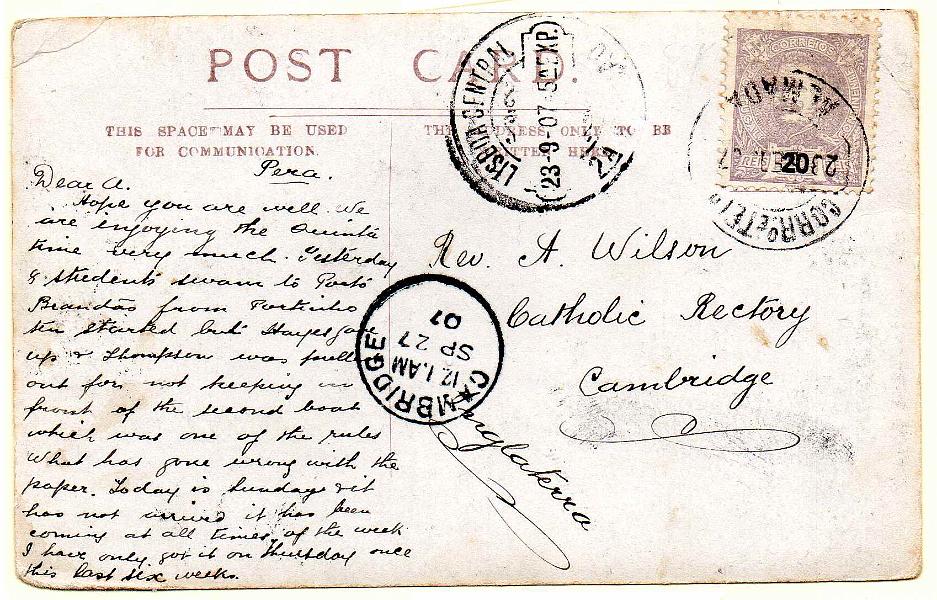 POST CARD.
THIS SPACE MAY BE USED
FOR COMMUNICATION.
THE ADDRESS ONLY TO BE
HERE
LISBOA CENTRAL
23-9-07-5 EXP.
2A
CORREIOS
REIS 20
ALMADA
CORRº E TEL
Pera.
Dear A.
Hope you are well. We
are injoying the Quinta
time very much. Yesterday
8 students swam to Porto
Brandão from Portinho
ten started but Hayes gave
up & Thompson was pulled
out for not keeping in
front of the second boat
which was one of the rules
What has gone wrong with the
paper. Today is Sunday & it
has not arrived it has been
coming at all times of the week
I have only got it on Thursday once
this last six weeks.
Rev. A. Wilson
Catholic Rectory
Cambridge
Inglaterra
CAMBRIDGE
12 1 AM
SP 27
07